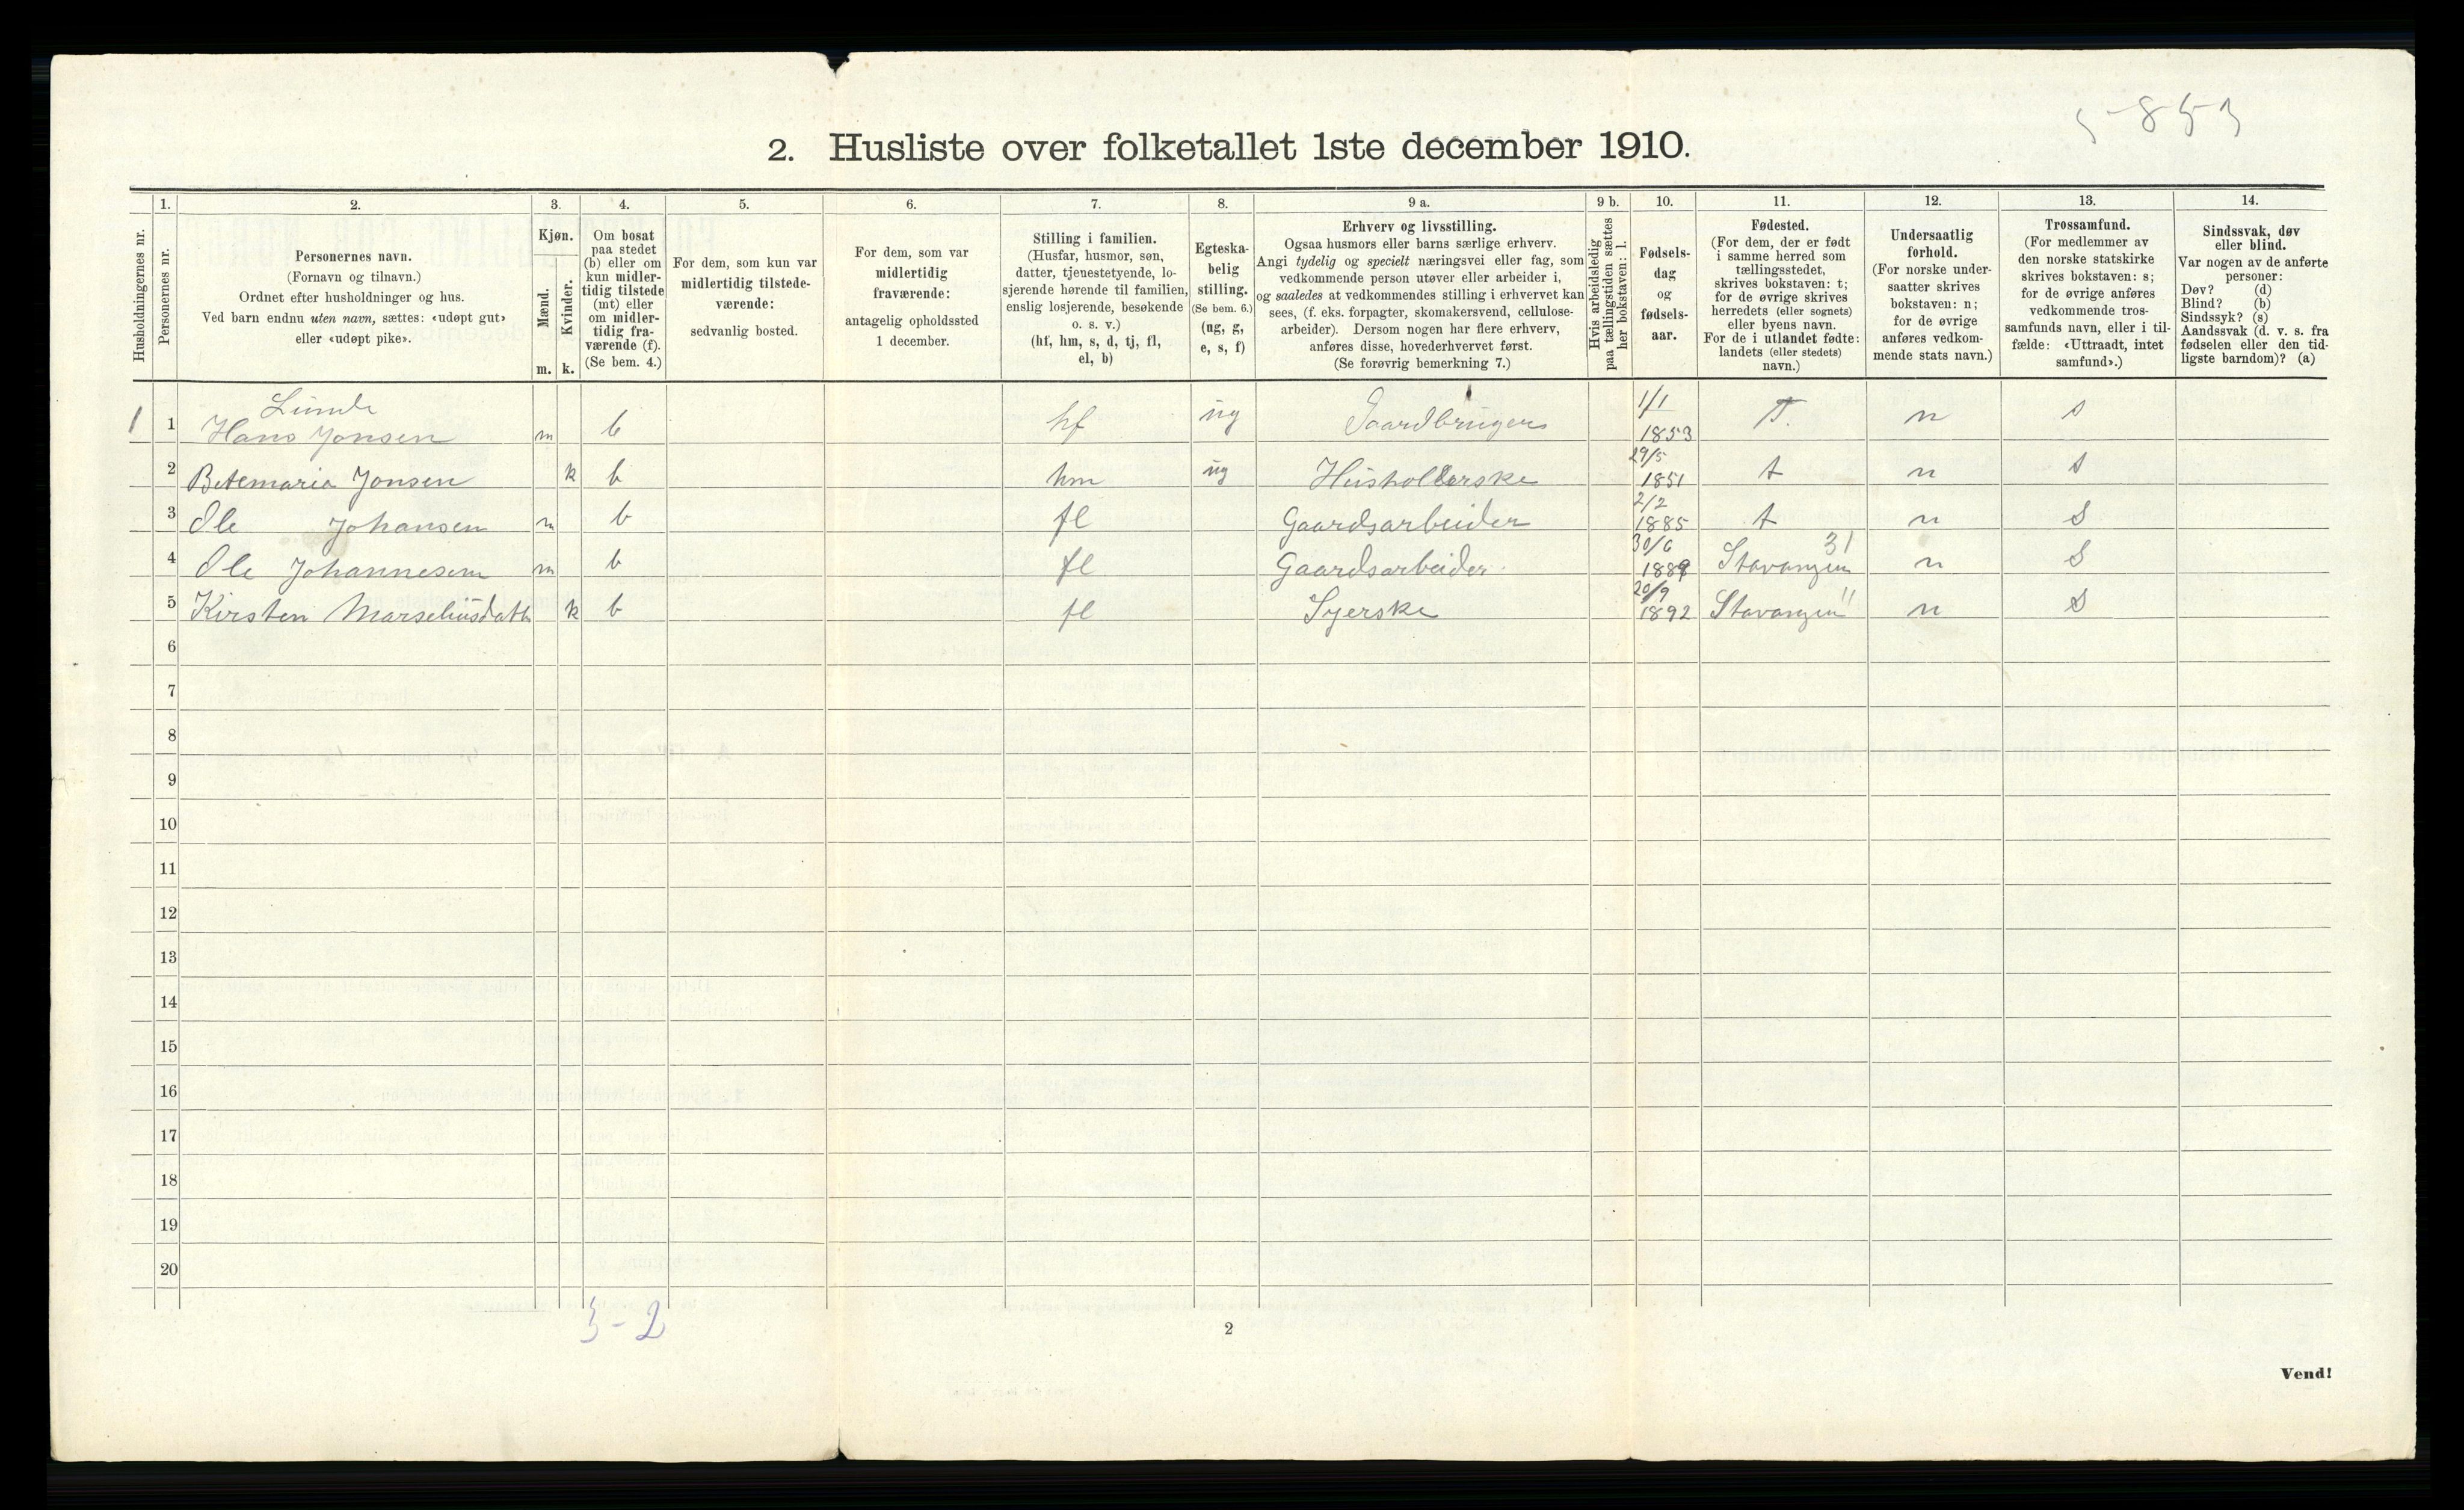 5-853
2. Husliste over folketallet 1ste december 1910.
Husholdningernes nr.
1.
Personernes nr.
2.
Personernes navn.
(Fornavn og tilnavn.)
Ordnet efter husholdninger og hus.
Ved barn endnu uten navn, sættes: «udøpt gut»
eller «udøpt pike».
3.
Kjøn.
Mænd.
Kvinder.
m. k.
4.
Om bosat
paa stedet
(b) eller om
kun midler-
tidig tilstede
(mt) eller
om midler-
tidig fra-
værende (f).
(Se bem. 4.)
5.
For dem, som kun var
midlertidig tilstede-
værende:
sedvanlig bosted.
6.
For dem, som var
midlertidig
fraværende:
antagelig opholdssted
1 december.
7.
Stilling i familien.
(Husfar, husmor, søn,
datter, tjenestetyende, lo-
sjerende hørende til familien,
enslig losjerende, besøkende
o. s. v.)
(hf, hm, s, d, tj, fl,
el, b)
8.
Egteska-
belig
stilling.
(Se bem. 6.)
(ug, g,
e, s, f)
9 a.
Erhverv og livsstilling.
Ogsaa husmors eller barns særlige erhverv.
Angi tydelig og specielt næringsvei eller fag, som
vedkommende person utøver eller arbeider i,
og saaledes at vedkommendes stilling i erhvervet kan
sees, (f. eks. forpagter, skomakersvend, cellulose-
arbeider). Dersom nogen har flere erhverv,
anføres disse, hovederhvervet først.
(Se forøvrig bemerkning 7.)
9 b.
Hvis arbeidsledig
paa tællingstiden sættes
her bokstaven: l.
10.
Fødsels-
dag
og
fødsels-
aar.
11.
Fødested.
(For dem, der er født
i samme herred som
tællingsstedet,
skrives bokstaven: t;
for de øvrige skrives
herredets (eller sognets)
eller byens navn.
For de i utlandet fødte:
landets (eller stedets)
navn.)
12.
Undersaatlig
forhold.
(For norske under-
saatter skrives
bokstaven: n;
for de øvrige
anføres vedkom-
mende stats navn.)
13.
Trossamfund.
(For medlemmer av
den norske statskirke
skrives bokstaven: s;
for de øvrige anføres
vedkommende tros-
samfunds navn, eller i til-
fælde: «Uttraadt, intet
samfund».)
14.
Sindssvak, døv
eller blind.
Var nogen av de anførte
personer:
Døv? (d)
Blind? (b)
Sindssyk? (s)
Aandssvak (d. v. s. fra
fødselen eller den tid-
ligste barndom)? (a)
Lunde
1 1 Hans Jonsen m b hf ug Gaardbruger 1/1 1853 T. n s
2 Betemaria Jonsen k b hm ug Husholderske 29/5 1851 t n s
3 Ole Johansen m b fl Gaardsarbeider 2/2 1885 t n S
4 Ole Johannesen m b fl Gaardsarbeider 30/6 1889 Stavangen 31 n S
5 Kirsten Marseliusdatt k b fl Syerske 20/9 1892 Stavangen " n S
6
7
8
9
10
11
12
13
14
15
16
17
18
19
20
3-2
2
Vend!